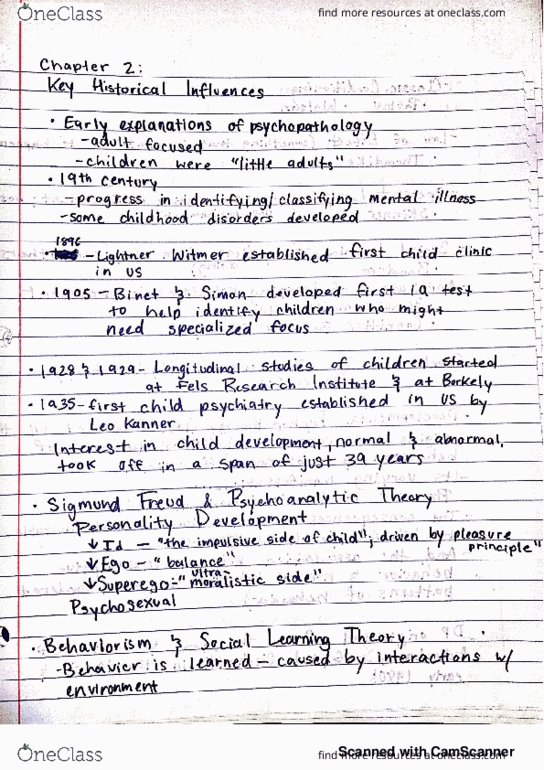 OneClass
find more resources at oneclass.com
Chapter 2:
Key Historical Influences
• Early explanations of psychopathology
-adult focused
-children were "little adults"
• 19th century
-progress in identifying/classifying mental illness
-some childhood disorders developed
1896
• -Lightner Witmer established first child clinic
in US
• 1905 - Binet & Simon developed first IQ test
to help identify children who might
need specialized focus
• 1928 & 1929- Longitudinal studies of children started
at Fels Research Institute & at Berkely
• 1935-first child psychiatry established in US by
Leo Kanner
Interest in child development, normal & abnormal,
took off in a span of just 39 years
• Sigmund Freud & Psychoanalytic Theory
Personality Development
↓ Id - "the impulsive side of child"; driven by pleasure
principle"
↓ Ego - "balance"
ultra-
↓ Superego-" moralistic side"
Psychosexual
• Behaviorism & Social Learning Theory
-Behavior is learned - caused by interactions w/
environment
OneClass
find more resources at oneclass.com
Scanned with CamScanner